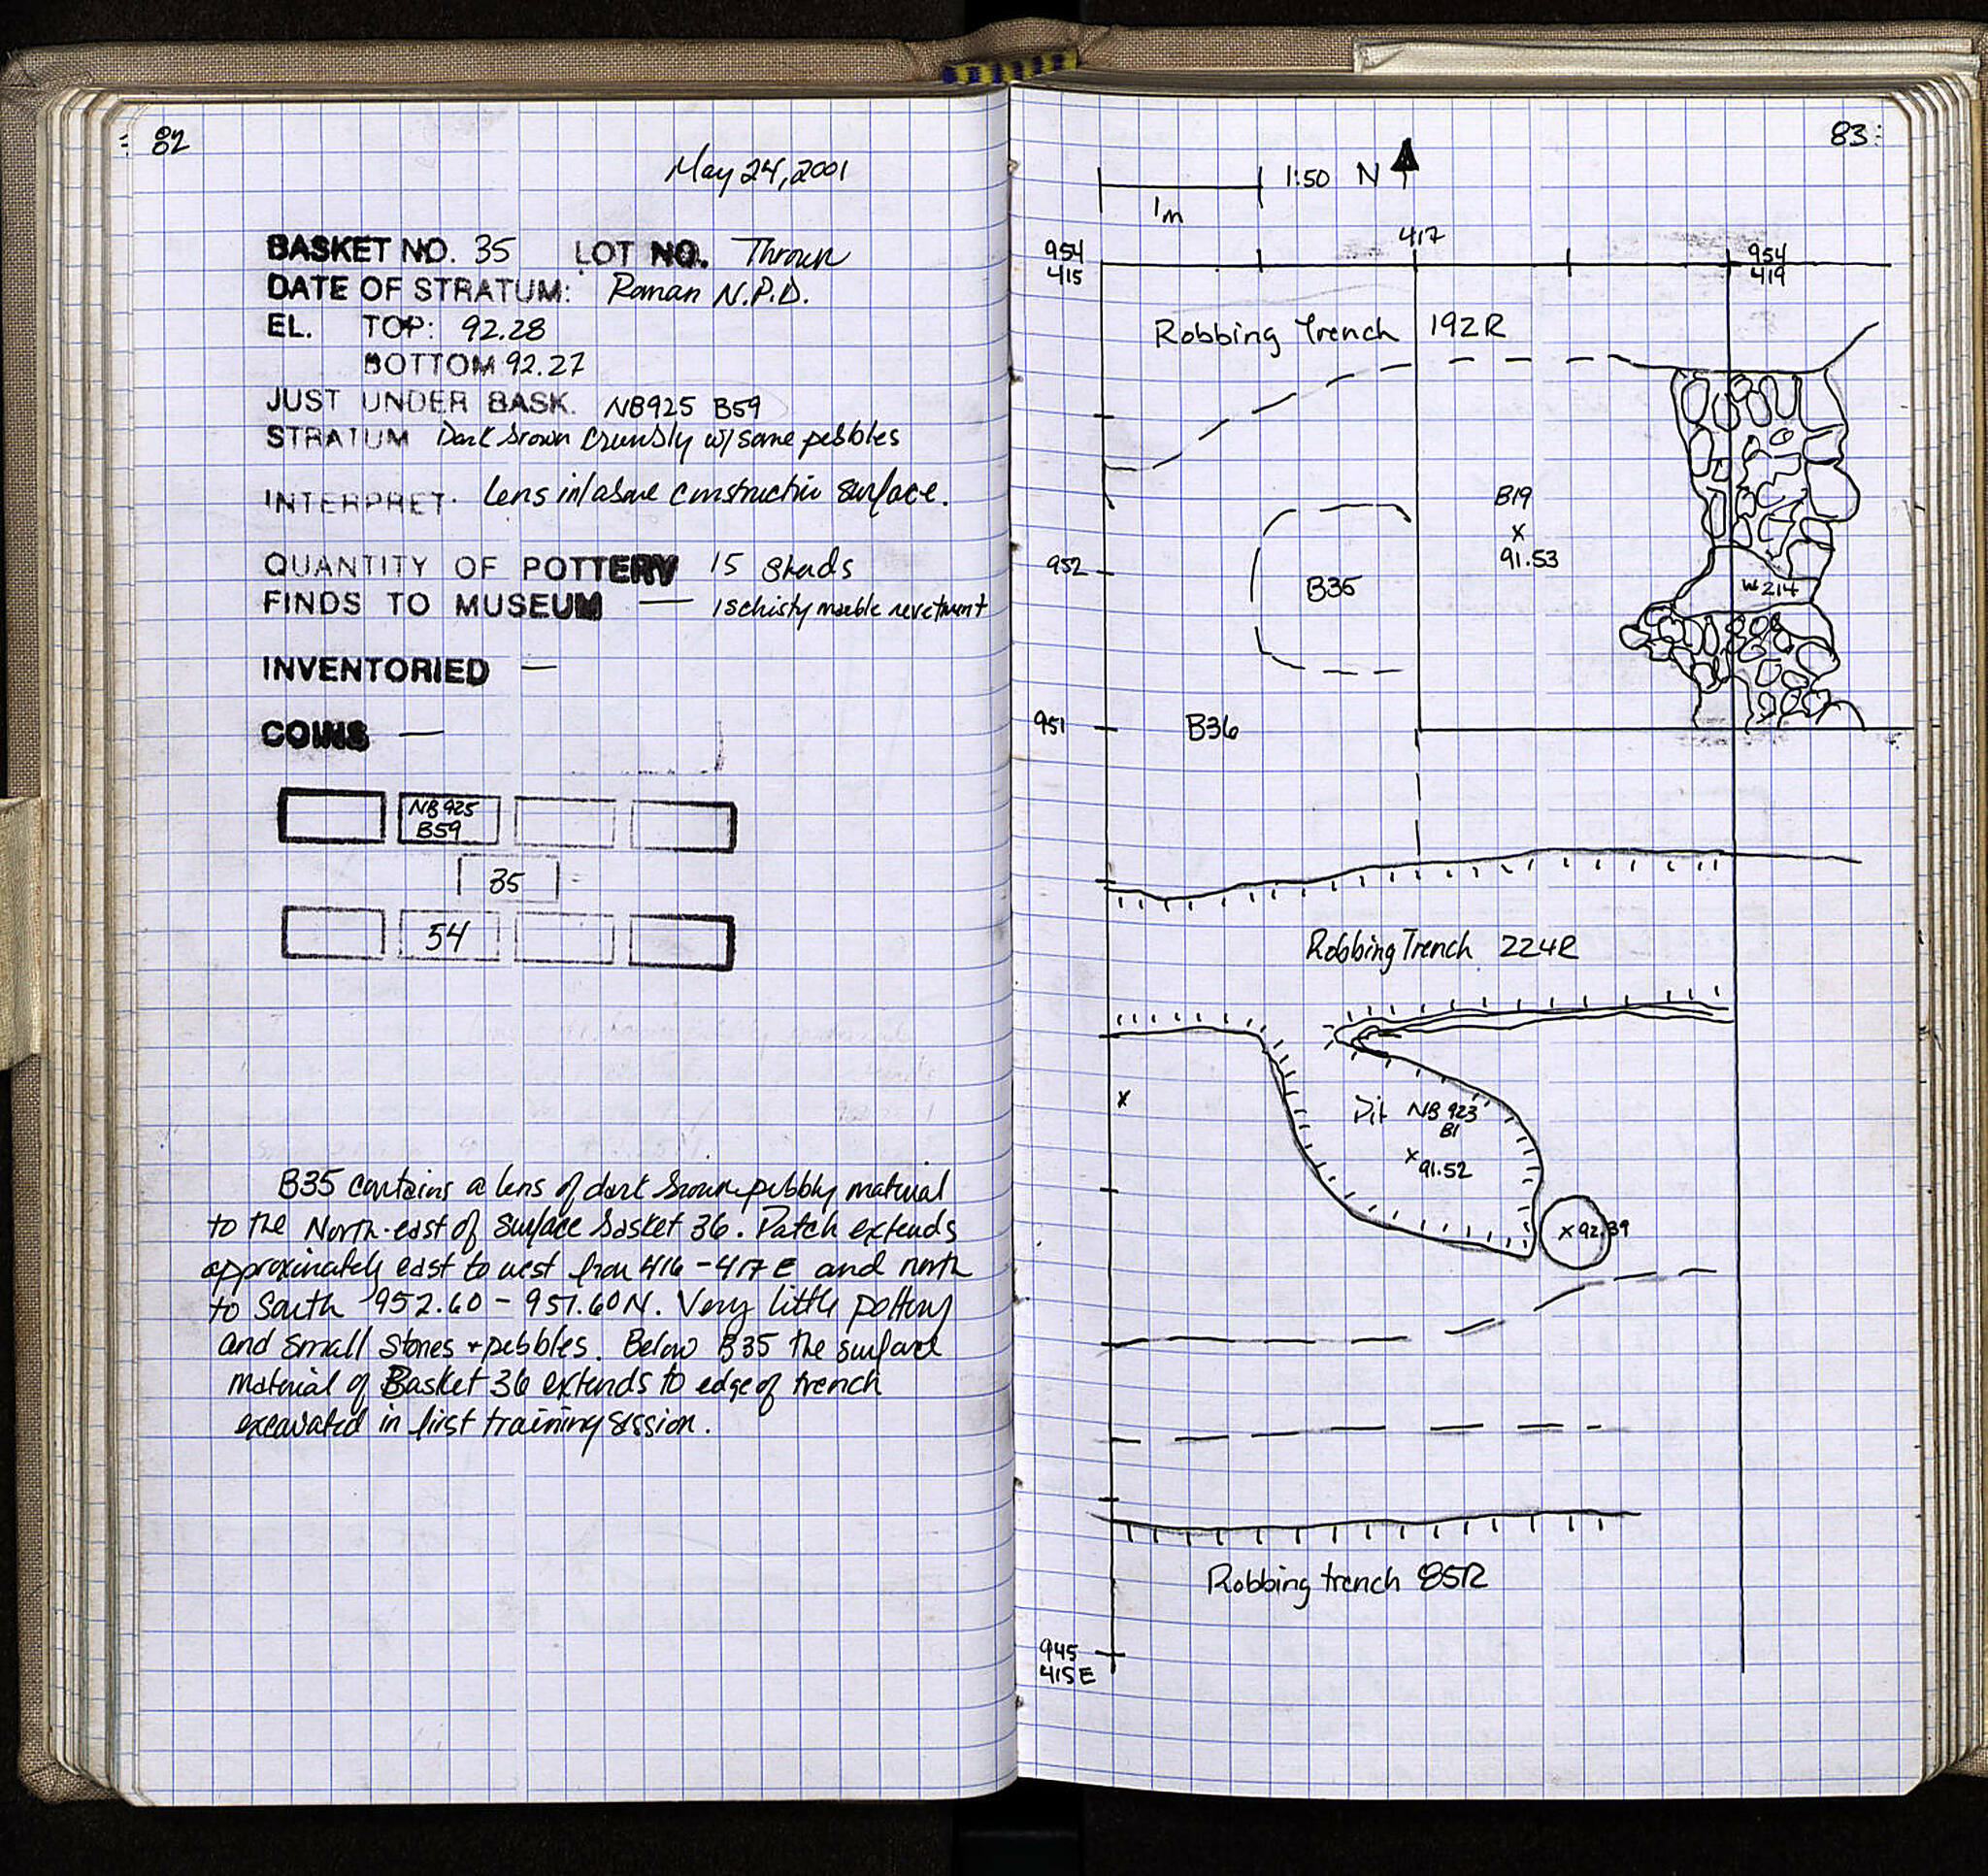 82
May 24, 2001
BASKET NO. 35 LOT NO. Thrown
DATE OF STRATUM: Roman N.P.D.
EL. TOP: 92.28
BOTTOM 92.27
JUST UNDER BASK. NB925 B59
STRATUM Dark brown crumbly w/ some pebbles
INTERPRET. Lens in/above construction surface.
QUANTITY OF POTTERY 15 sherds
FINDS TO MUSEUM — 1 schisty marble revetment
INVENTORIED —
COINS —
NB 925
B59
35
54
B35 contains a lens of dark brown pebbly material
to the North-east of surface basket 36. Patch extends
approximately east to west from 416 - 417 E and north
to South 952.60 - 951.60 N. Very little pottery
and small stones + pebbles. Below B35 the surface
material of Basket 36 extends to edge of trench
excavated in first training session.
83
1:50 N
1m
417
954
415
954
419
Robbing Trench 192R
B19
x
91.53
952
B35
W214
951
B36
Robbing Trench 224R
x
Pit NB 923
B1
x 91.52
x 92.39
Robbing trench 85R
945
415E